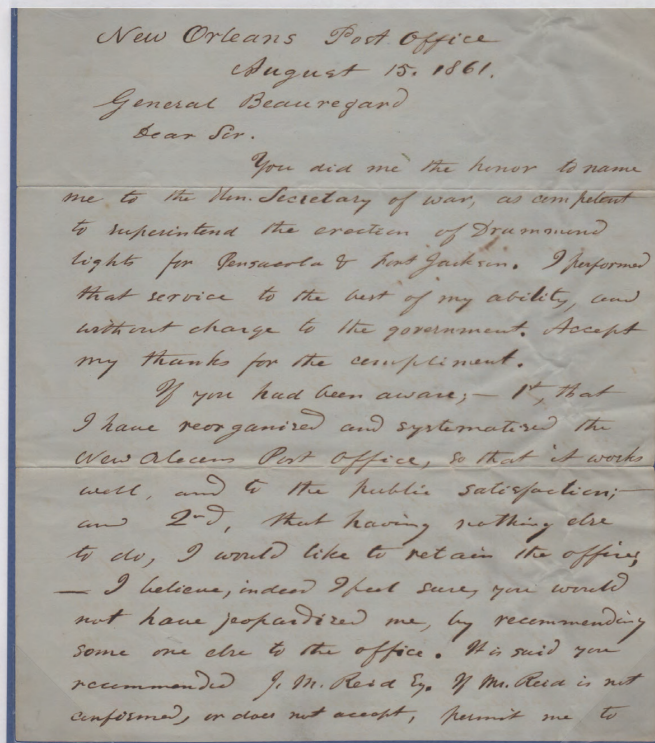 New Orleans Post Office
August 15. 1861.
General Beauregard
Dear Sir.
You did me the honor to name
me to the Hon. Secretary of war, as competent
to superintend the erection of Drummond
lights for Pensacola & Fort Jackson. I performed
that service to the best of my ability, and
without charge to the government. Accept
my thanks for the compliment.
If you had been aware; — 1st, that
I have reorganised and systematised the
New Orleans Post Office, so that it works
well, and to the public satisfaction; —
and 2nd, that having nothing else
to do, I would like to retain the office;
— I believe, indeed I feel sure, you would
not have jeopardized me, by recommending
some one else to the office. It is said you
recommended J. M. Reid Esq. If Mr. Reid is not
confirmed, or does not accept, permit me to